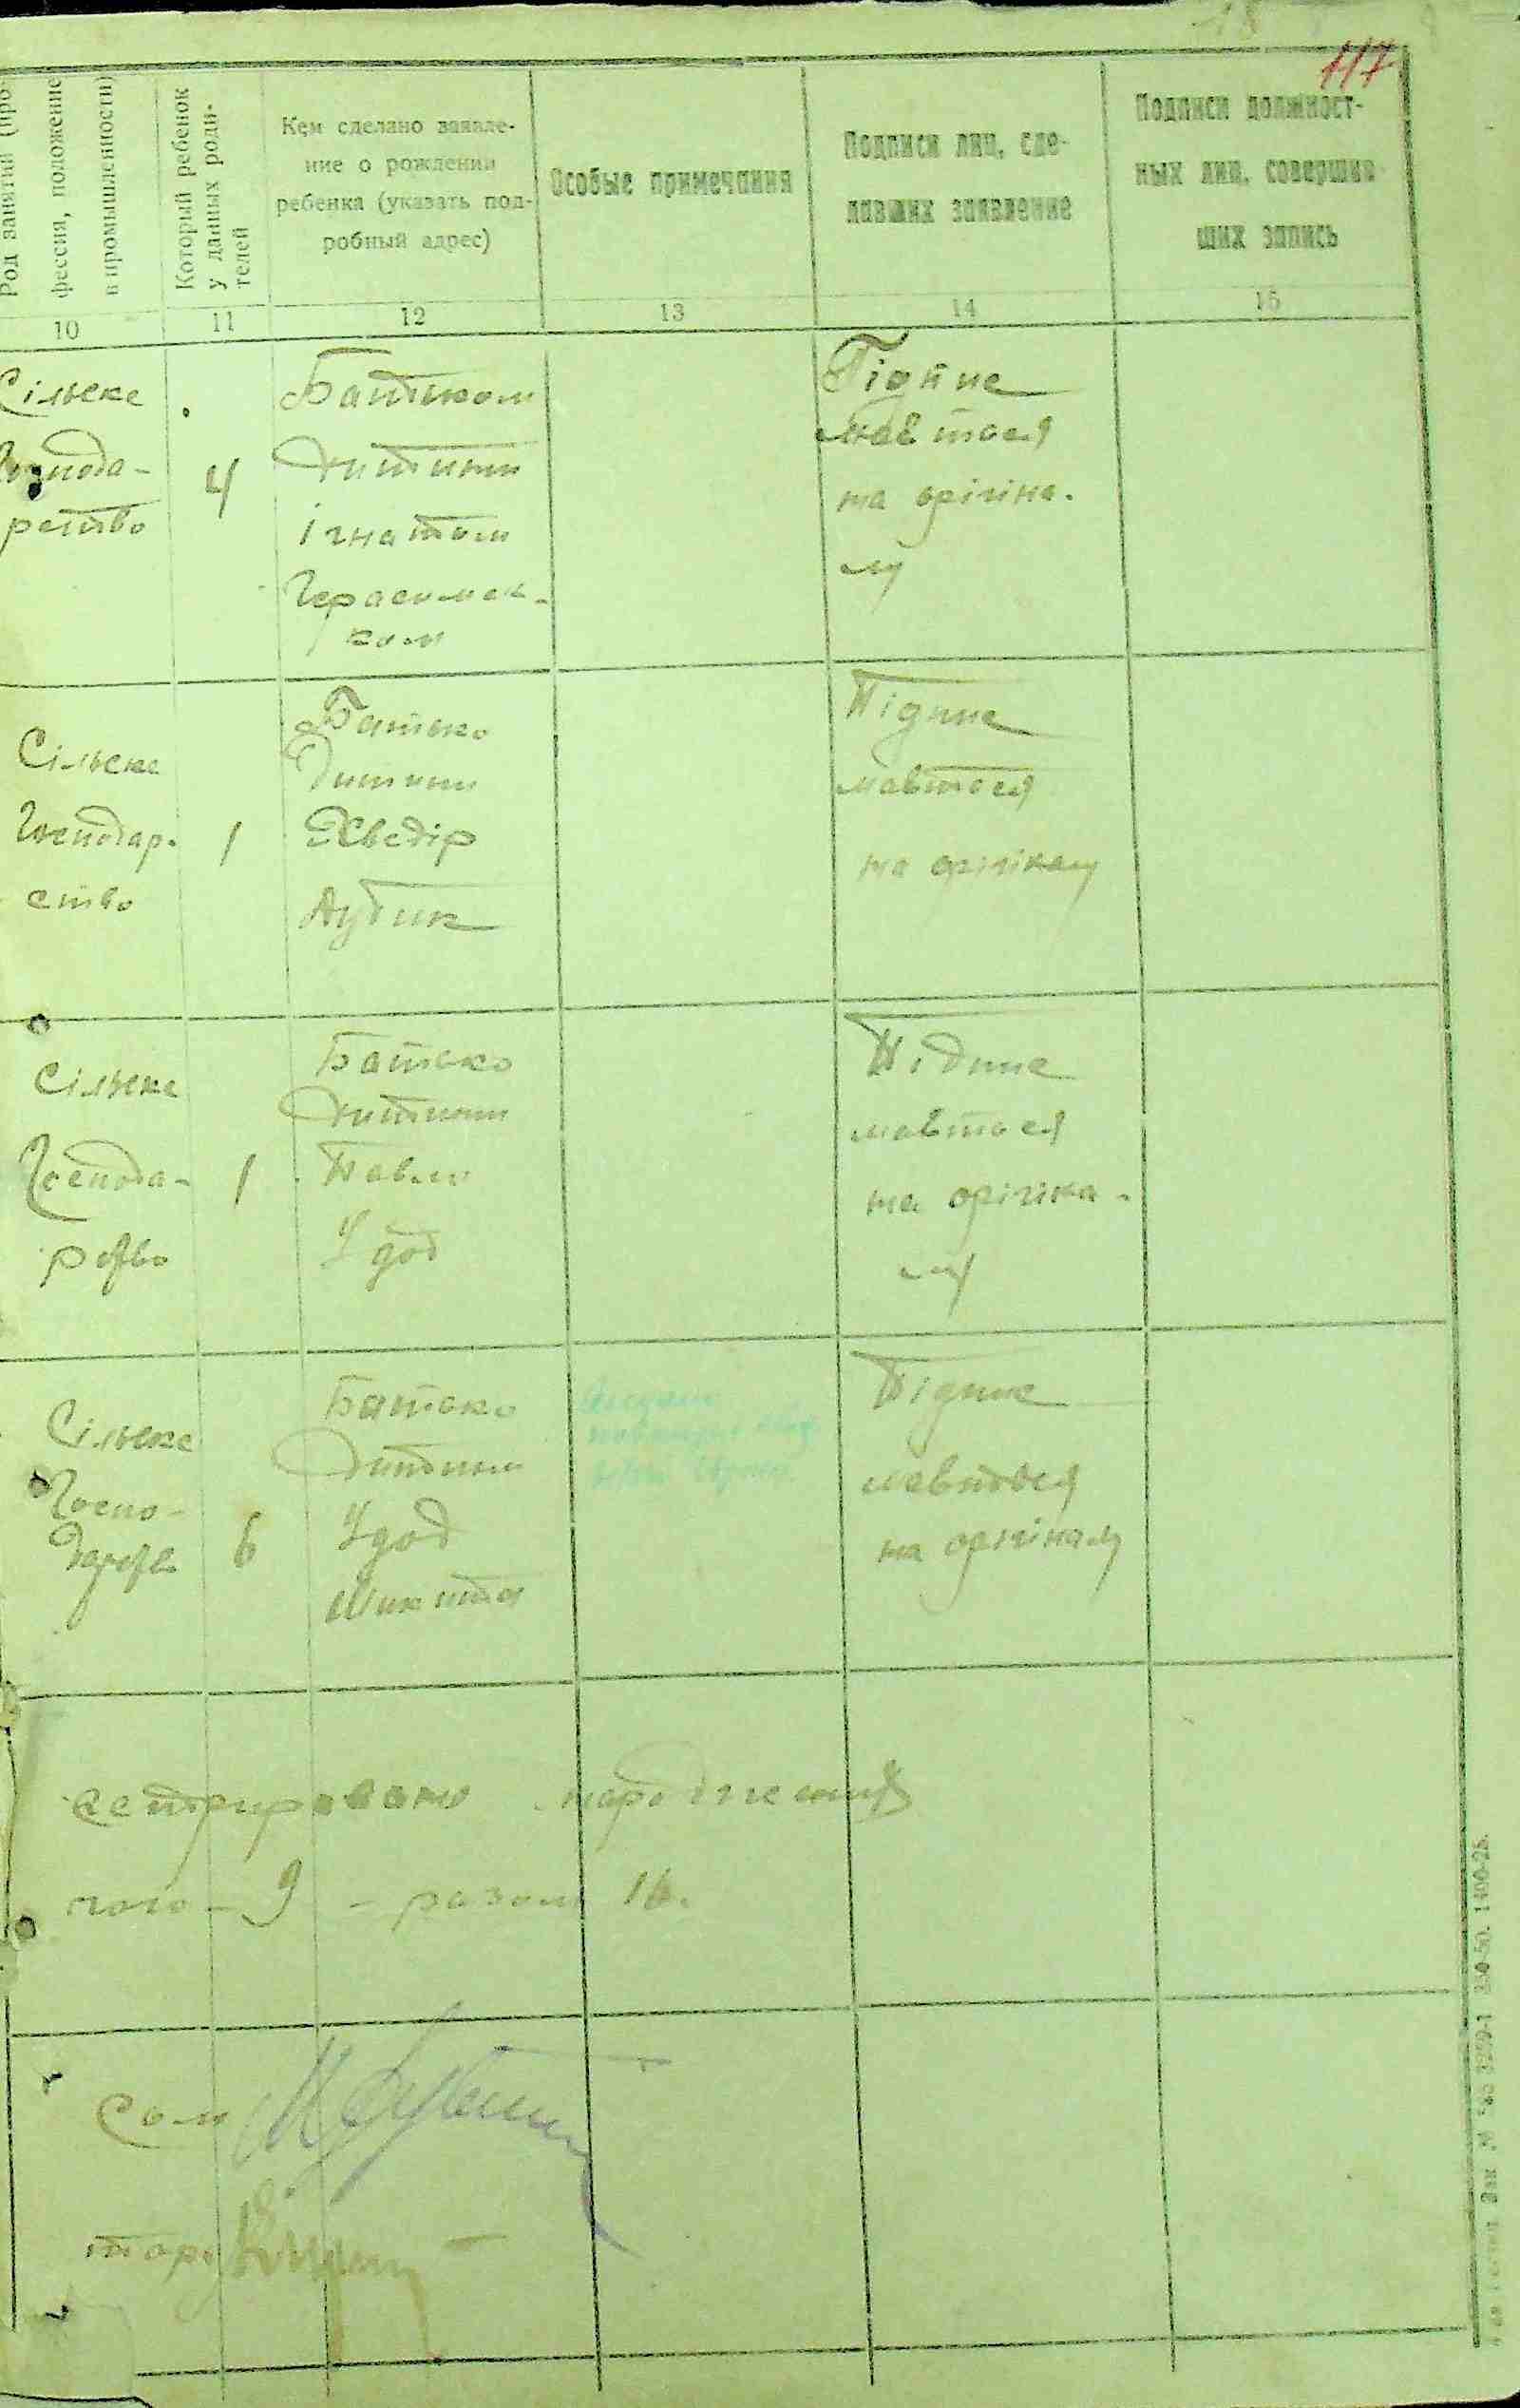 18
117
Род занятий (про-
фессия, положение
в промышленности)
Который ребенок
у данных роди-
телей
Кем сделано заявле-
ние о рождении
ребенка (указать под-
робный адрес)
Особые примечания
Подписи лиц, сде-
лавших заявление
Подписи должност-
ных лиц, совершив-
ших запись
10 11 12 13 14 15
Сільске
Господа-
рство
4
Батьком
дитини
Ігнатом
Герасимен-
ком
Підпис
мавтося
на орігіна-
лу
Сільске
Господар-
ство
1
Батько
Дитини
Хведір
Дудик
Підпис
мавтося
на орігіналу
Сільске
Господа-
рство
1
Батько
дитини
Павло
Удод
Підпис
мавтося
на орігіна-
лу
Сільске
Госпо-
дарство
6
Батько
Дитини
Удод
Микита
Підпис
мавтося
на орігіналу
естрировано народження
чого - 9 - разом 16.